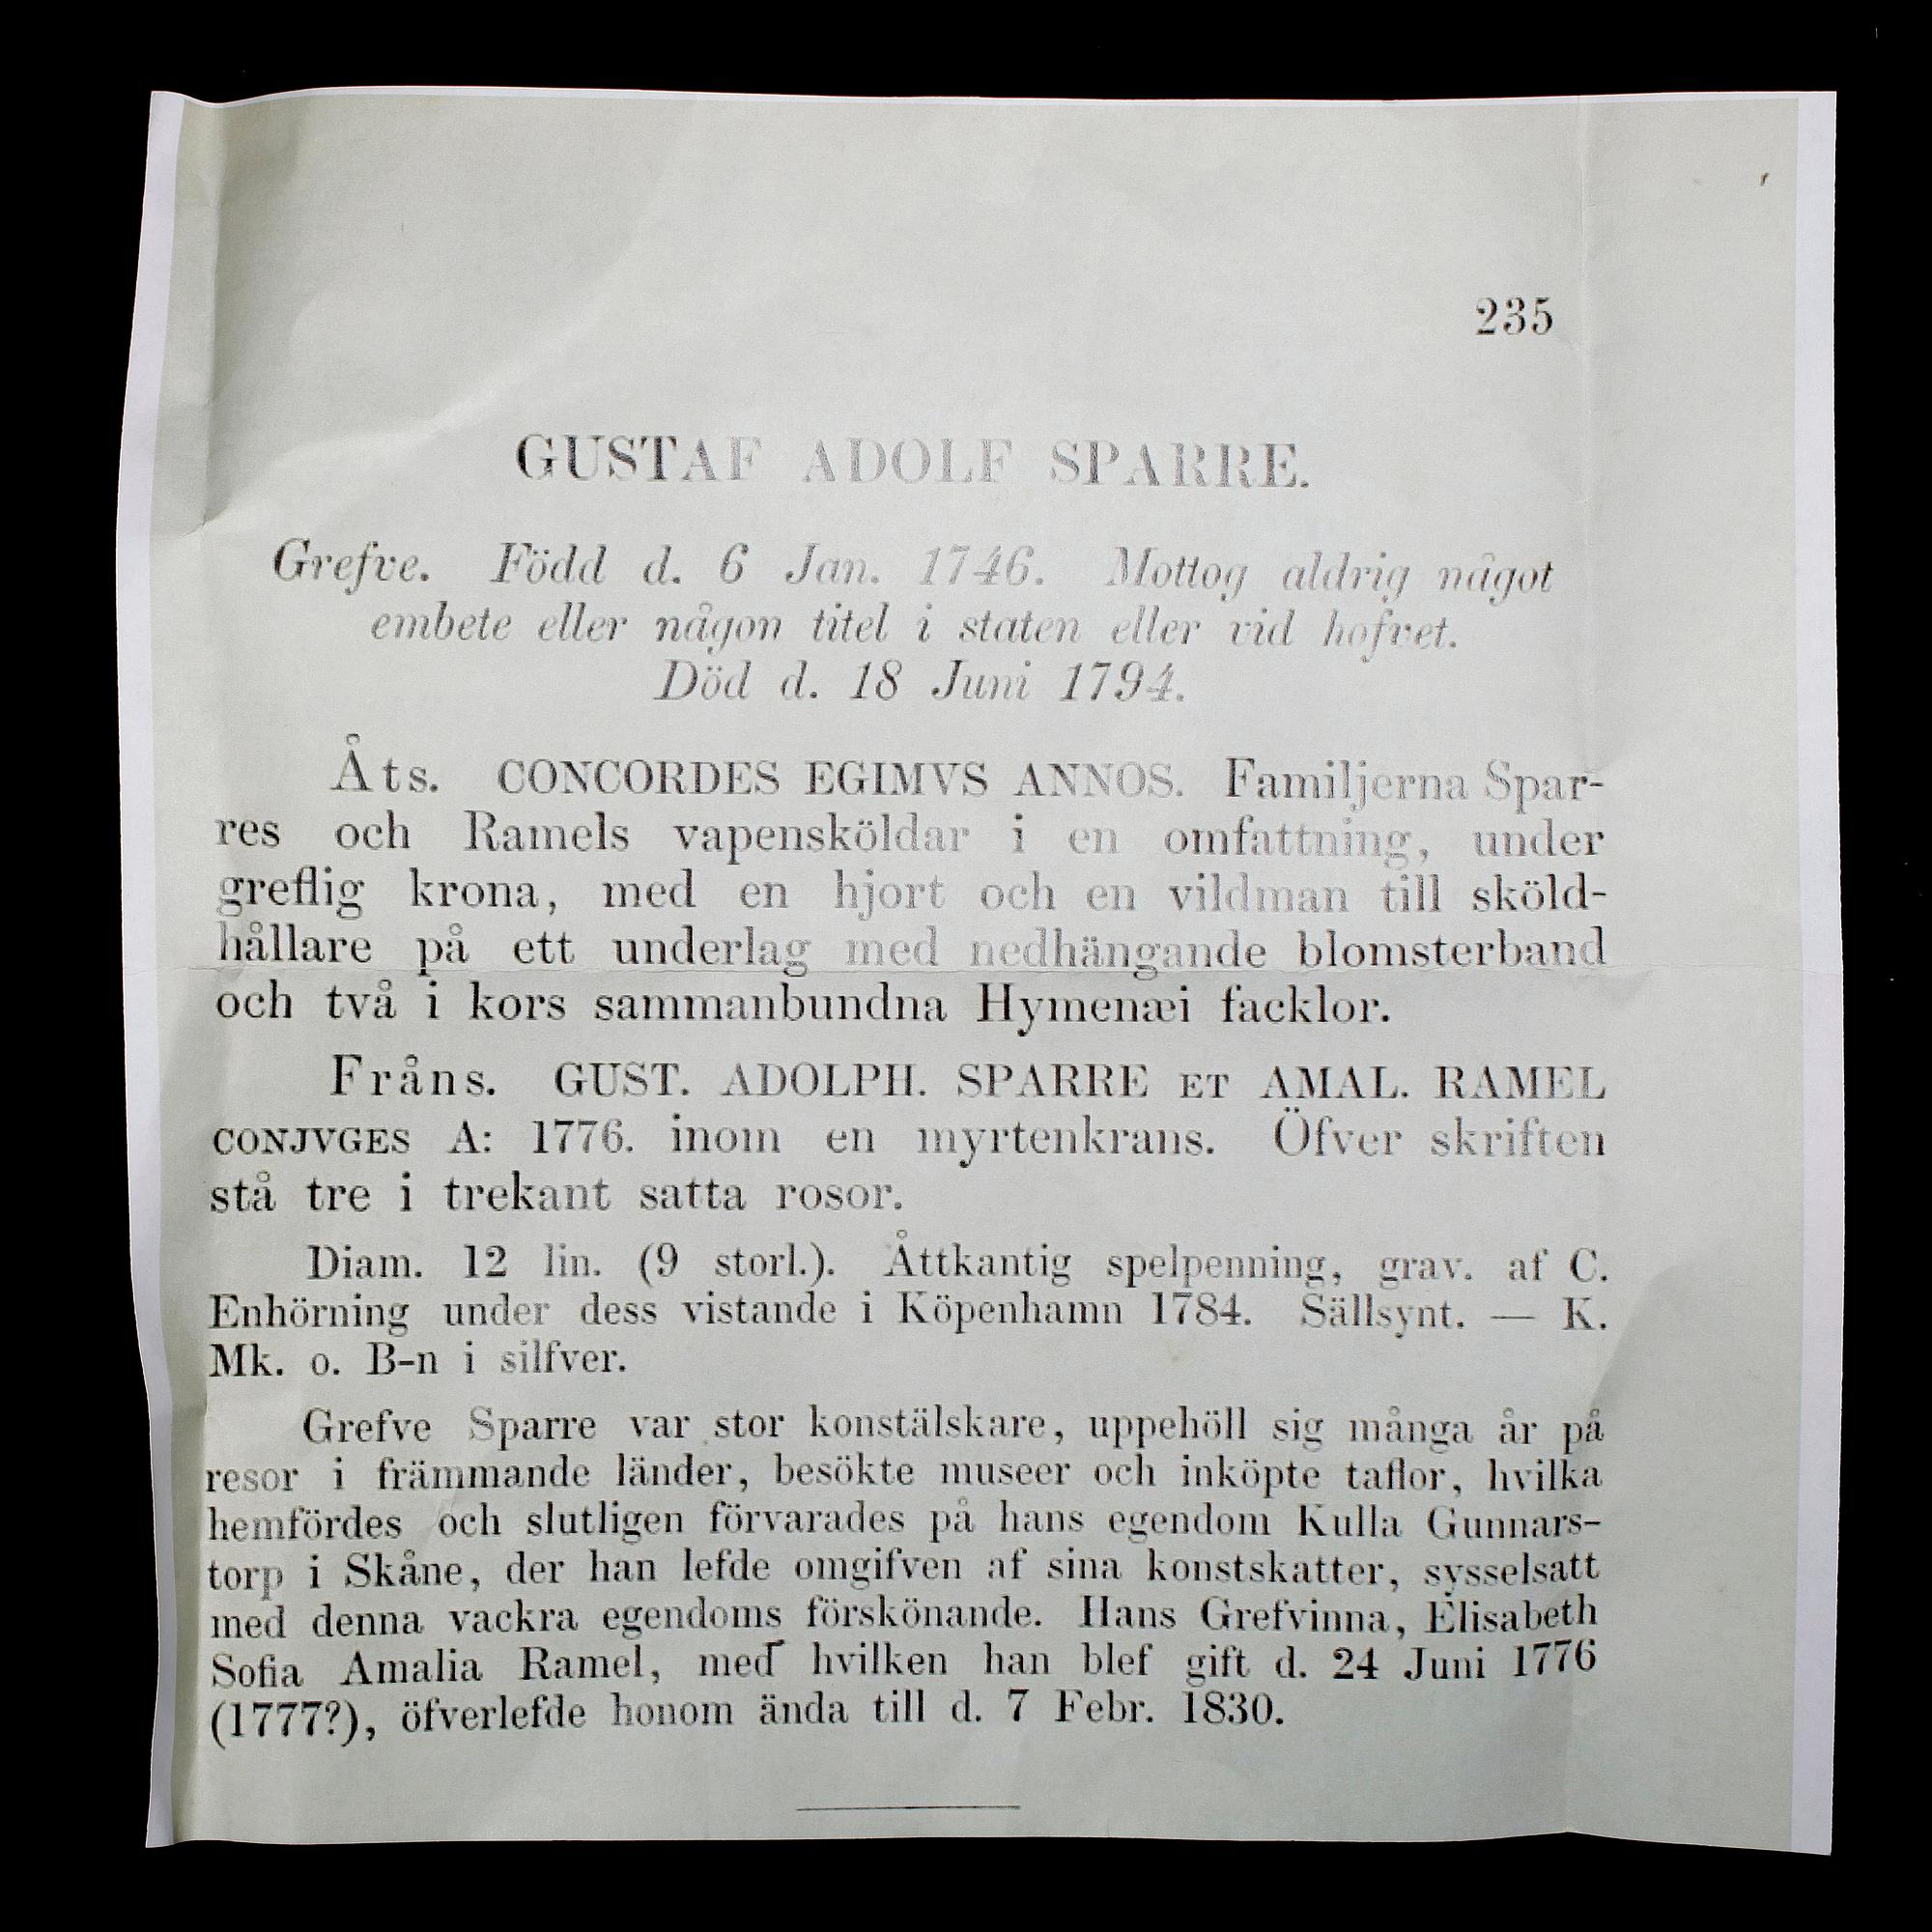 235
GUSTAF ADOLF SPARRE.
Grefve. Född d. 6 Jan. 1746. Mottog aldrig något
embete eller någon titel i staten eller vid hofvet.
Död d. 18 Juni 1794.
Åts. CONCORDES EGIMVS ANNOS. Familjerna Spar-
res och Ramels vapensköldar i en omfattning, under
greflig krona, med en hjort och en vildman till sköld-
hållare på ett underlag med nedhängande blomsterband
och två i kors sammanbundna Hymenæi facklor.
Fråns. GUST. ADOLPH. SPARRE ET AMAL. RAMEL
CONJVGES A: 1776. inom en myrtenkrans. Öfver skriften
stå tre i trekant satta rosor.
Diam. 12 lin. (9 storl.). Åttkantig spelpenning, grav. af C.
Enhörning under dess vistande i Köpenhamn 1784. Sällsynt. — K.
Mk. o. B-n i silfver.
Grefve Sparre var stor konstälskare, uppehöll sig många år på
resor i främmande länder, besökte museer och inköpte taflor, hvilka
hemfördes och slutligen förvarades på hans egendom Kulla Gunnars-
torp i Skåne, der han lefde omgifven af sina konstskatter, sysselsatt
med denna vackra egendoms förskönande. Hans Grefvinna, Elisabeth
Sofia Amalia Ramel, med hvilken han blef gift d. 24 Juni 1776
(1777?), öfverlefde honom ända till d. 7 Febr. 1830.